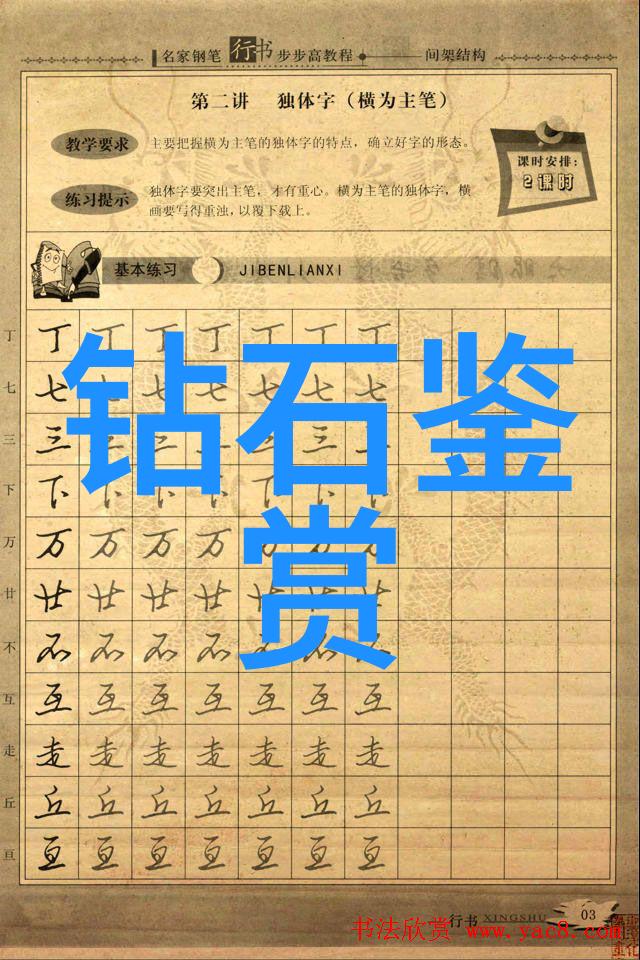 名家钢笔 行书 步步高教程 间架结构
第二讲 独体字（横为主笔）
教学要求 主要把握横为主笔的独体字的特点，确立好字的形态。
课时安排：
2课时
练习提示 独体字要突出主笔，才有重心。横为主笔的独体字，横
画要写得重浊，以覆下载上。
基本练习 JIBENLIANXI
丁 丁 丁 丁 丁 丁 丁 丁
七 七 七 七 七 七 七 七
三 三 三 三 三 三 三 三
下 下 下 下 下 下 下 下
万 万 万 万 万 万 万 万
廿 廿 廿 廿 廿 廿 廿 廿
不 不 不 不 不 不 不 不
互 互 互 互 互 互 互 互
走 走 走 走 走 走 走 走
丘 丘 丘 丘 丘 丘 丘 丘
亘 亘 亘 亘 亘 亘 亘 亘
钻石鉴
赏
行书 XINGSHU 03
书法欣赏 www.yac8.com